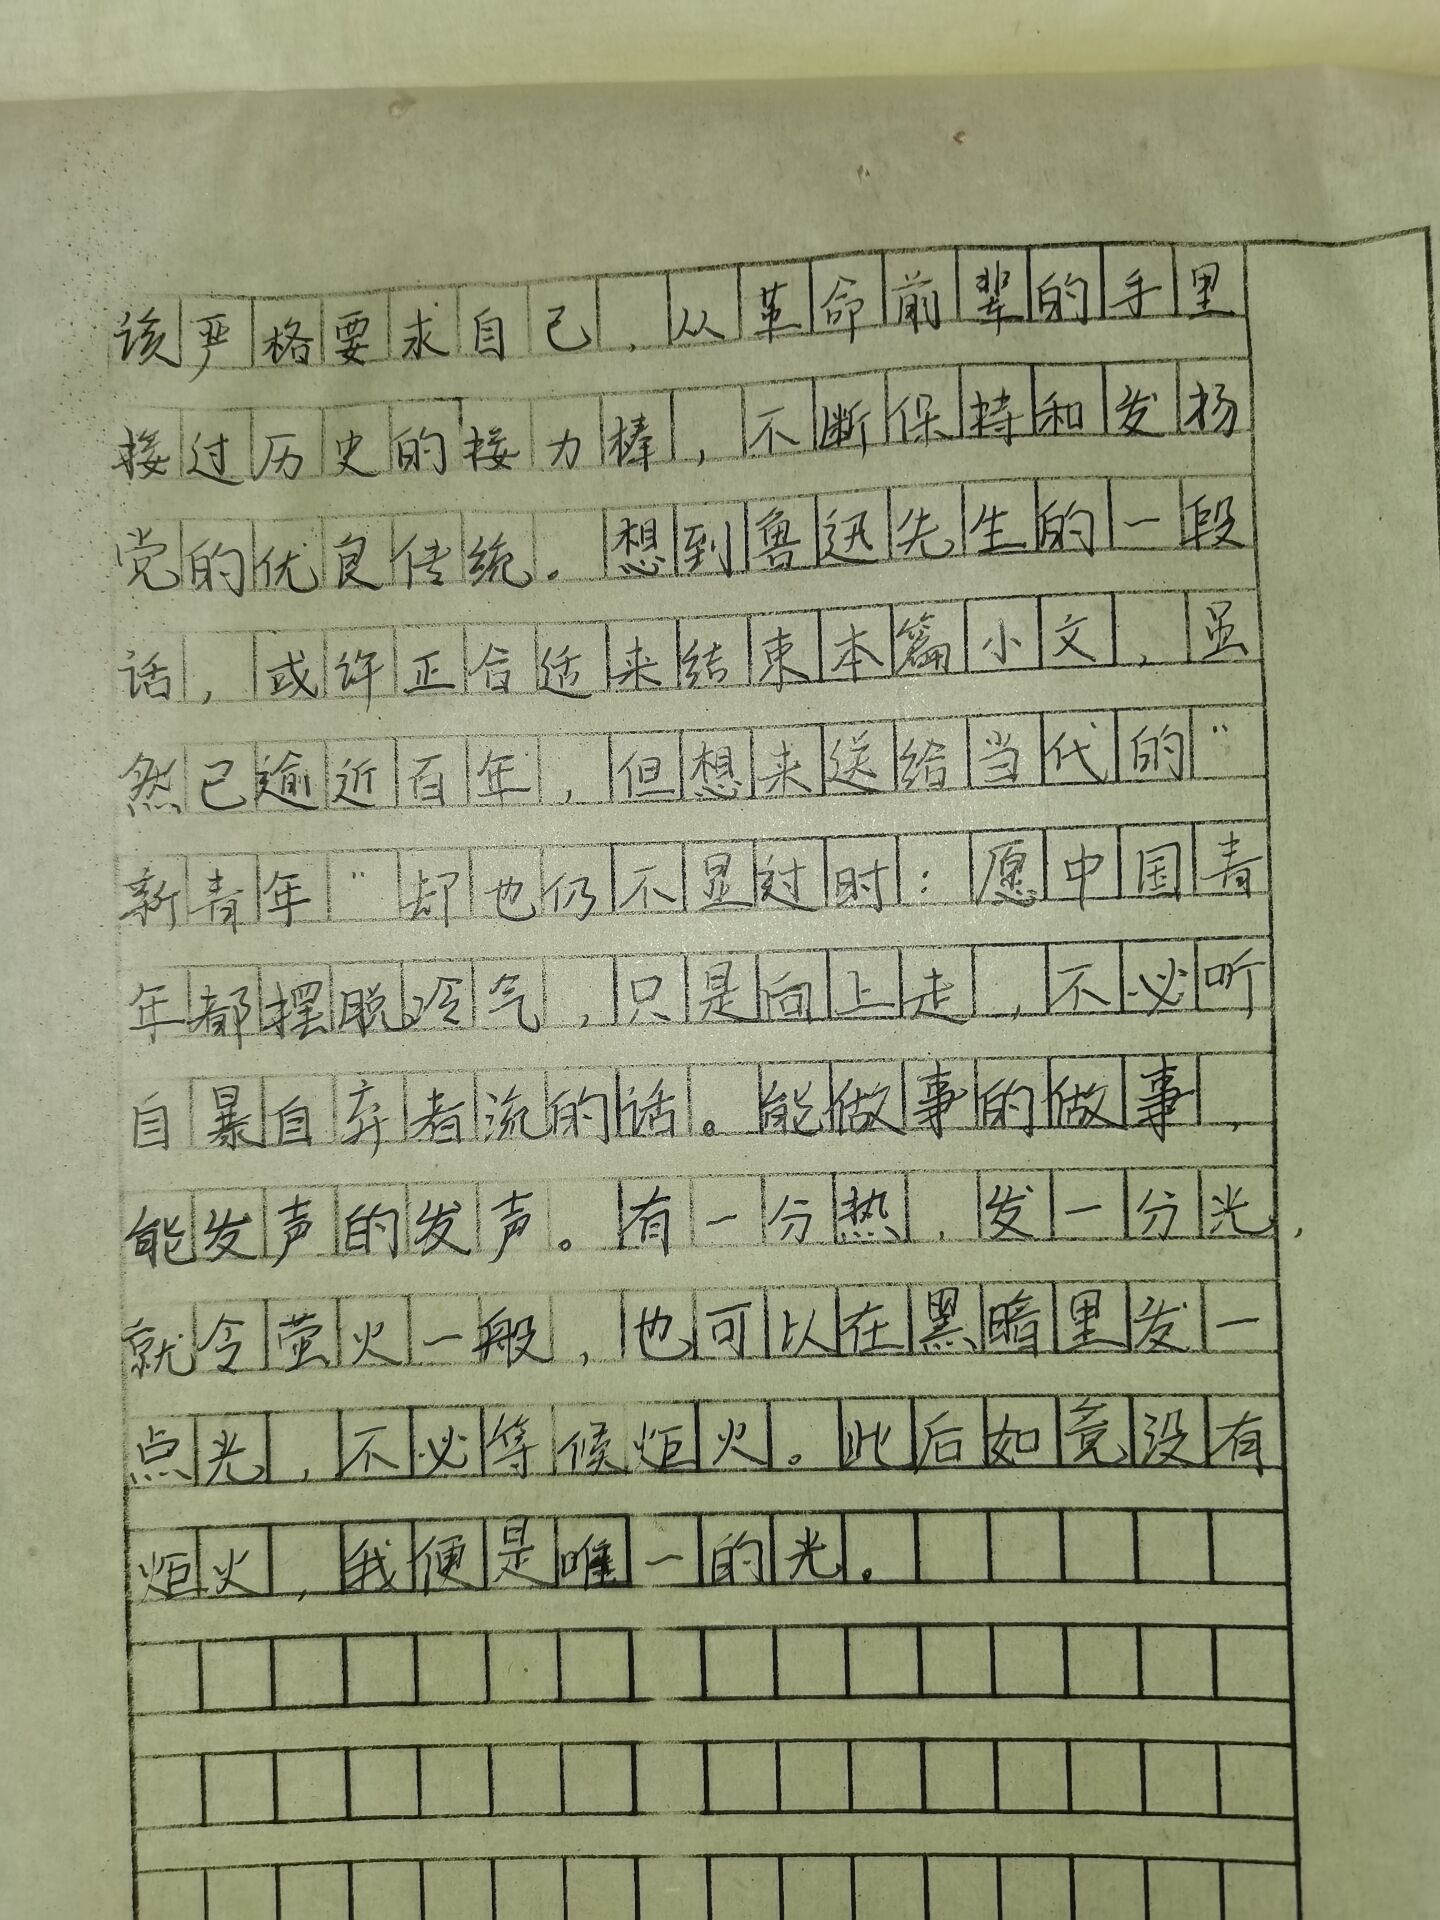 该严格要求自己，从革命前辈的手里
接过历史的接力棒，不断保持和发扬
党的优良传统。想到鲁迅先生的一段
话，或许正合适来结束本篇小文，虽
然已逾近百年，但想来送给当代的“
新青年”却也仍不显过时：愿中国青
年都摆脱冷气，只是向上走，不必听
自暴自弃者流的话。能做事的做事，
能发声的发声。有一分热，发一分光，
就令萤火一般，也可以在黑暗里发一
点光，不必等候炬火。此后如竟没有
炬火，我便是唯一的光。